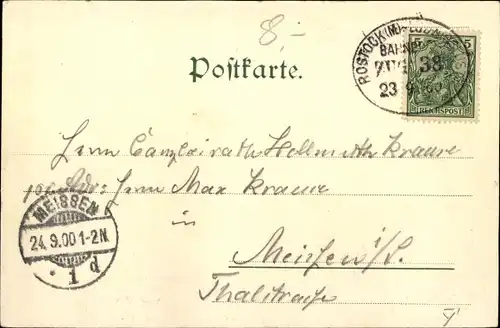 8.-
Postkarte.
5 5
REICHSPOST
ROSTOCK(M)
BAHNPOST
ZUG 38
23 9 00
Herrn Canzleirath Hellmuth Krause
Adr: Herrn Max Krause
in
Meißen i/S.
Thalstraße
MEISSEN
24.9.00.1-2N.
1 d